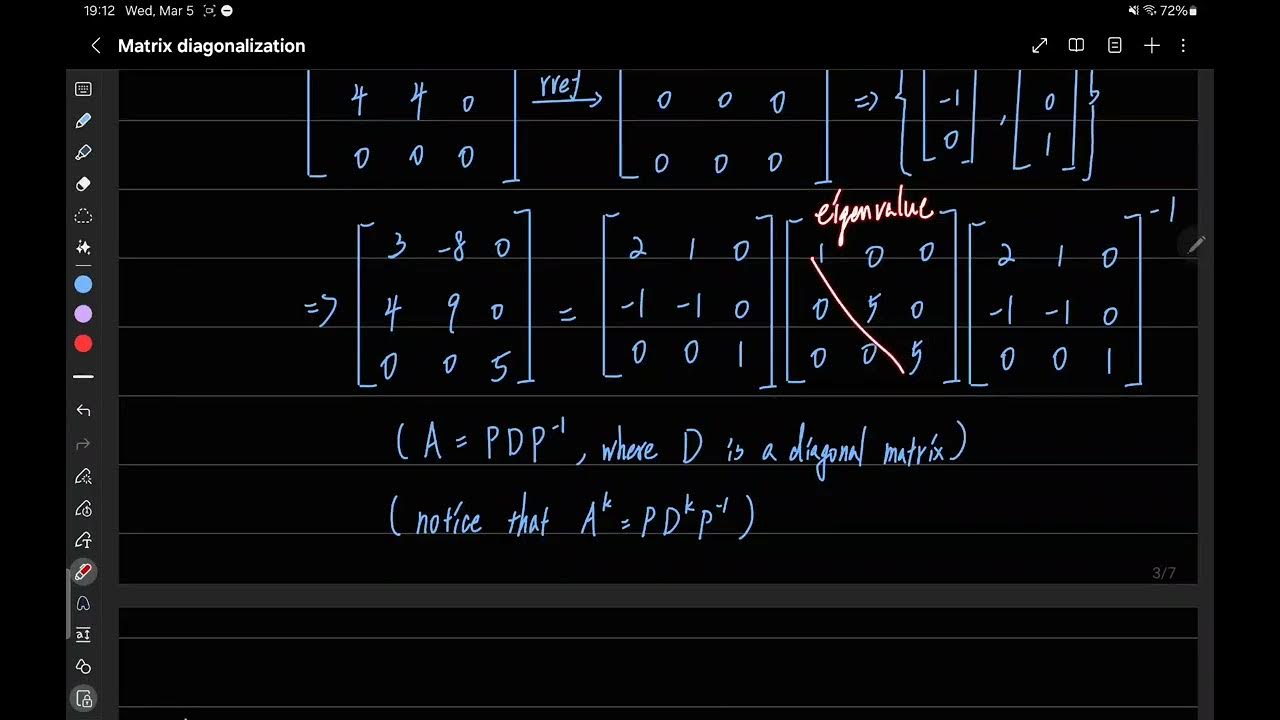 19:12 Wed, Mar 5 72%
Matrix diagonalization
4 4 0 rref 0 0 0 => { -1 , 0 }
0 0 0 0 0 0 0 1
eigenvalue
3 -8 0 2 1 0 1 0 0 2 1 0 -1
=> 4 9 0 = -1 -1 0 0 5 0 -1 -1 0
0 0 5 0 0 1 0 0 5 0 0 1
(A = PDP⁻¹, where D is a diagonal matrix)
(notice that Aᵏ = PDᵏP⁻¹)
3/7